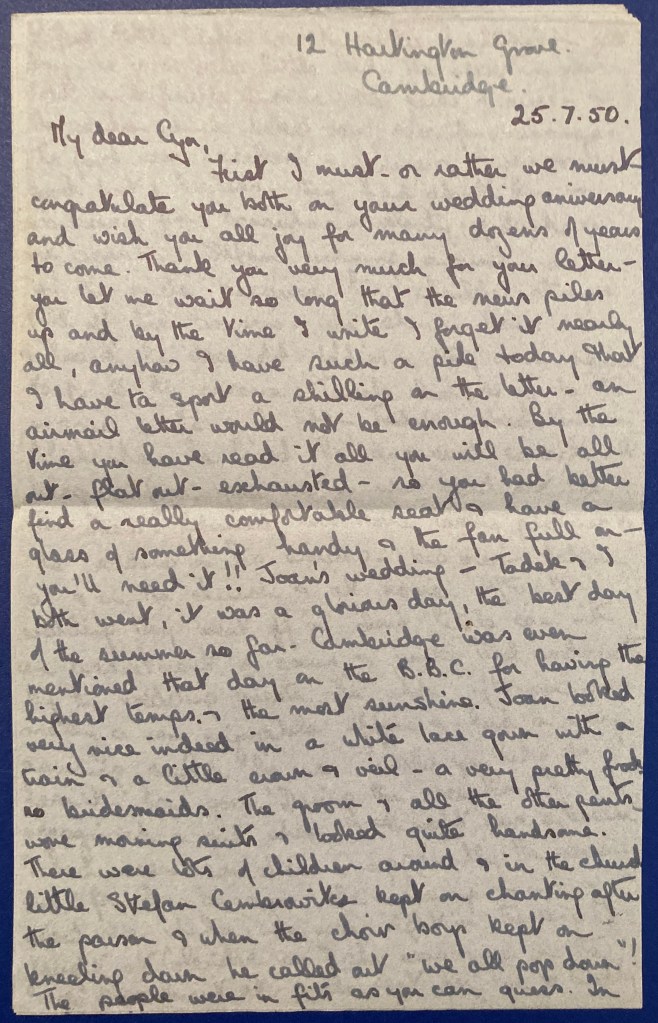 12 Hartington Grove.
Cambridge.
25.7.50.
My dear Cyn,
First I must - or rather we must
congratulate you both on your wedding aniversary
and wish you all joy for many dozens of years
to come. Thank you very much for your letter -
you let me wait so long that the news piles
up and by the time I write I forget it nearly
all, anyhow I have such a pile today that
I have to sport a shilling on the letter - an
airmail letter would not be enough. By the
time you have read it all you will be all
out - flat out - exhausted - so you had better
find a really comfortable seat & have a
glass of something handy & the fan full on -
you'll need it!! Joan's wedding - Tadek & I
both went, it was a glorious day, the best day
of the summer so far - Cambridge was even
mentioned that day on the B.B.C. for having the
highest temps. & the most sunshine. Joan looked
very nice indeed in a white lace gown with a
train & a little crown & veil - a very pretty frock
no bridesmaids. The groom & all the other gents
wore morning suits & looked quite handsome.
There were lots of children around & in the church
little Stefan kept on chanting after
the parson & when the choir boys kept on
kneeling down he called out "we all pop down"!
The people were in fits as you can guess. In